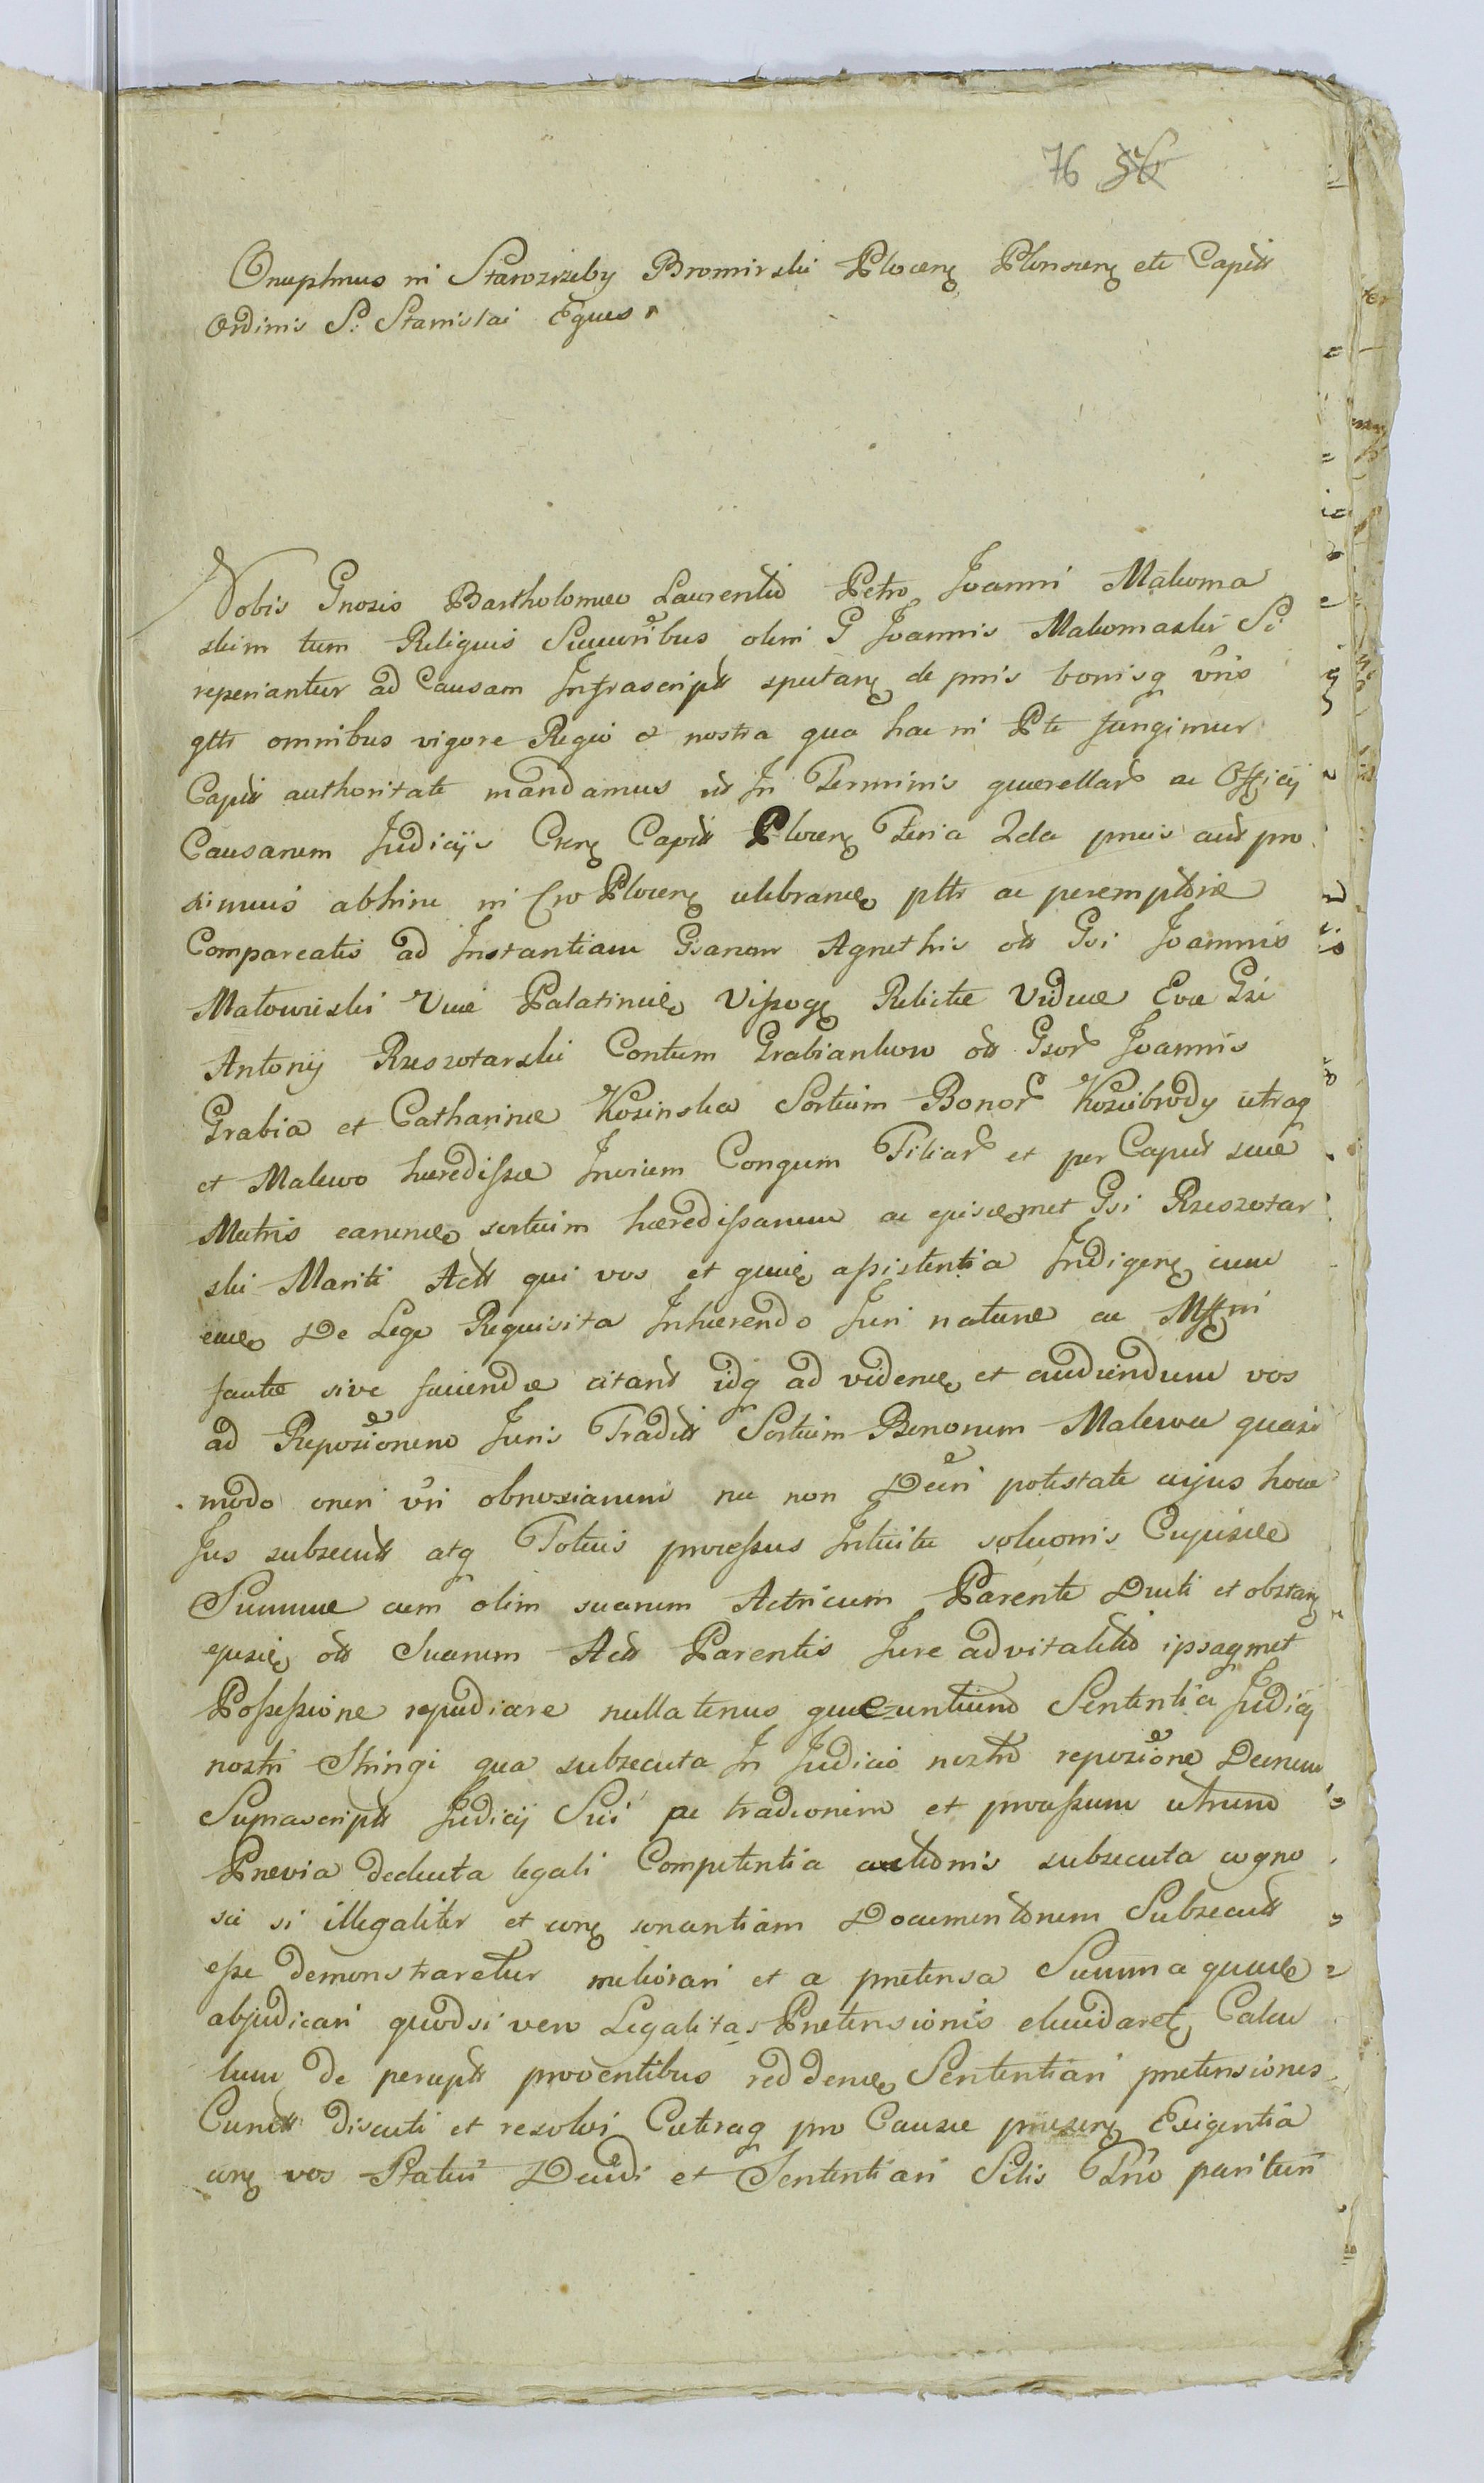 76 56
Onuphrius in Starozreby Bromirski Plocen Plonscen etc Capit
Ordinis S: Stanislai Eques
Vobis Gnosis Bartholomeo Laurentio Petro Joanni Makoma
skim tum Reliquis Succoribus olim G Joannis Makomaski Si
reperiantur ad Causam Infrascript sputan de pnis bonisq vris
gttr omnibus vigore Regia et nostra qua hac in Pte fungimur
Capit authoritate mandamus ut In Terminis querellar ac Officij
Causarum Judicijs Cren Capit Plocen Feria 2da pncis aut pro
ximius abhinc in Cro Plocen celebran pttr ac peremptorie
Compareatis ad Instantiam Gsarum Agnethis ott Gsi Joannis
Malowieski Palatin Vissog Relictae Viduae Evae Gsi
Antonij Rzeszotarski Contum Grabiankow ott Gsor Joannis
Grabia et Catharinae Kosinska Sortium Bonor Koziebrody utraq
et Malewo haeredissae Invicem Congum Filiar et per Caput suae
Matris earum sortium haeredissarum ac ejusmet Gsi Rzeszotar
ski Mariti Act qui vos et assistentia Indigen cum
De Lege Requisita Inhaerendo Juri naturae ac
factae sive faciendae citant idq ad viden et audiendum vos
ad Reposionem Juris Tradit Sortium Bonorum Malewa quasi
modo oneri vri obnoxiarum nec non Dcri potestate cujus hocce
Jus subsecutt atq Totius processus Intuitu soluonis Cujusce
Summae cum olim suarum Actricum Parente Ducti et obstan
ejus ott Suarum Act Parentis Jure advitalitio ipsaqmet
Possessione repudiare nullatenus Sententia Judicij
nostri Stringi qua subsecuta In Judicio nostro reposione
Suprascript Judicij Sui ac tradionem et processum utrum
Praevia deducta legali Competentia actionis subsecuta cogno
sci si illegaliter et con sonantiam Documentorum Subsecutt
esse demonstraretur meliorari et a praetensa Summa
abjudicari quodsi vero Legalitas Praetensionis elucidaret Calcu
lum de percept proventibus redden Sententiari praetensiones
Cunctt discuti et resolvi Caeteraq pro Causae praesen Exigentia
con vos Statui Decidi et Sententiari Sitis Tno parituri